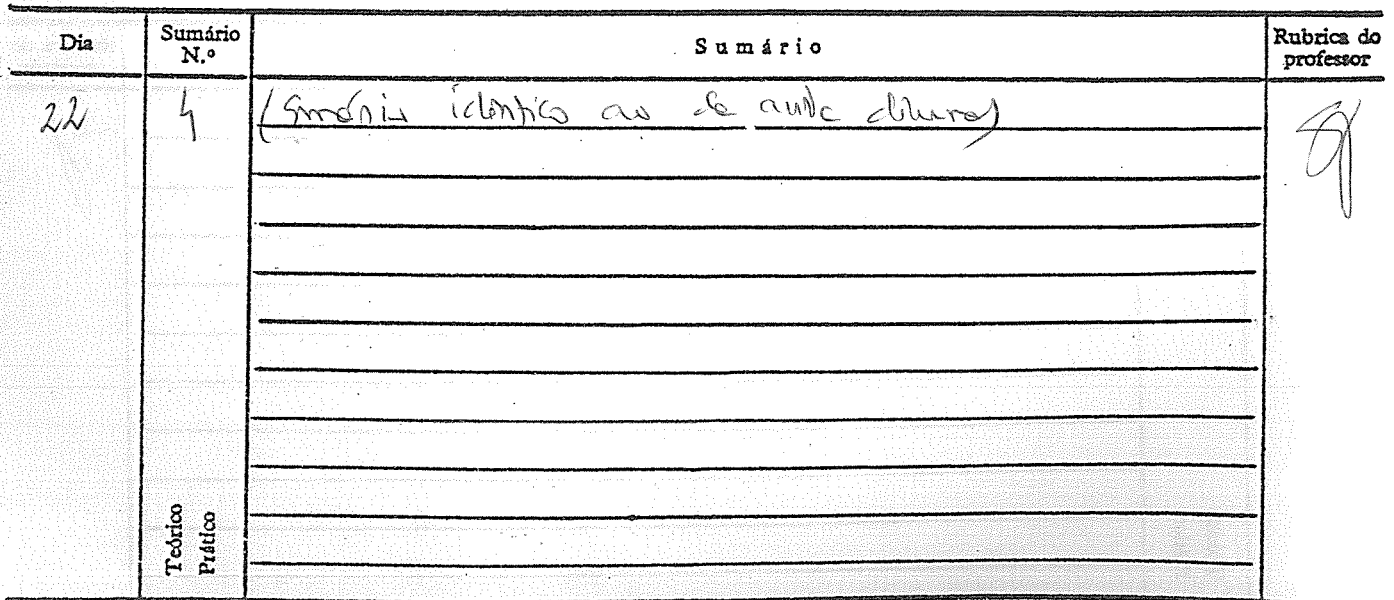 Dia
Sumário N.º
Sumário
Rubrica do professor
22
4
(Sumário idêntico ao da aula diurna)
Teórico
Prático